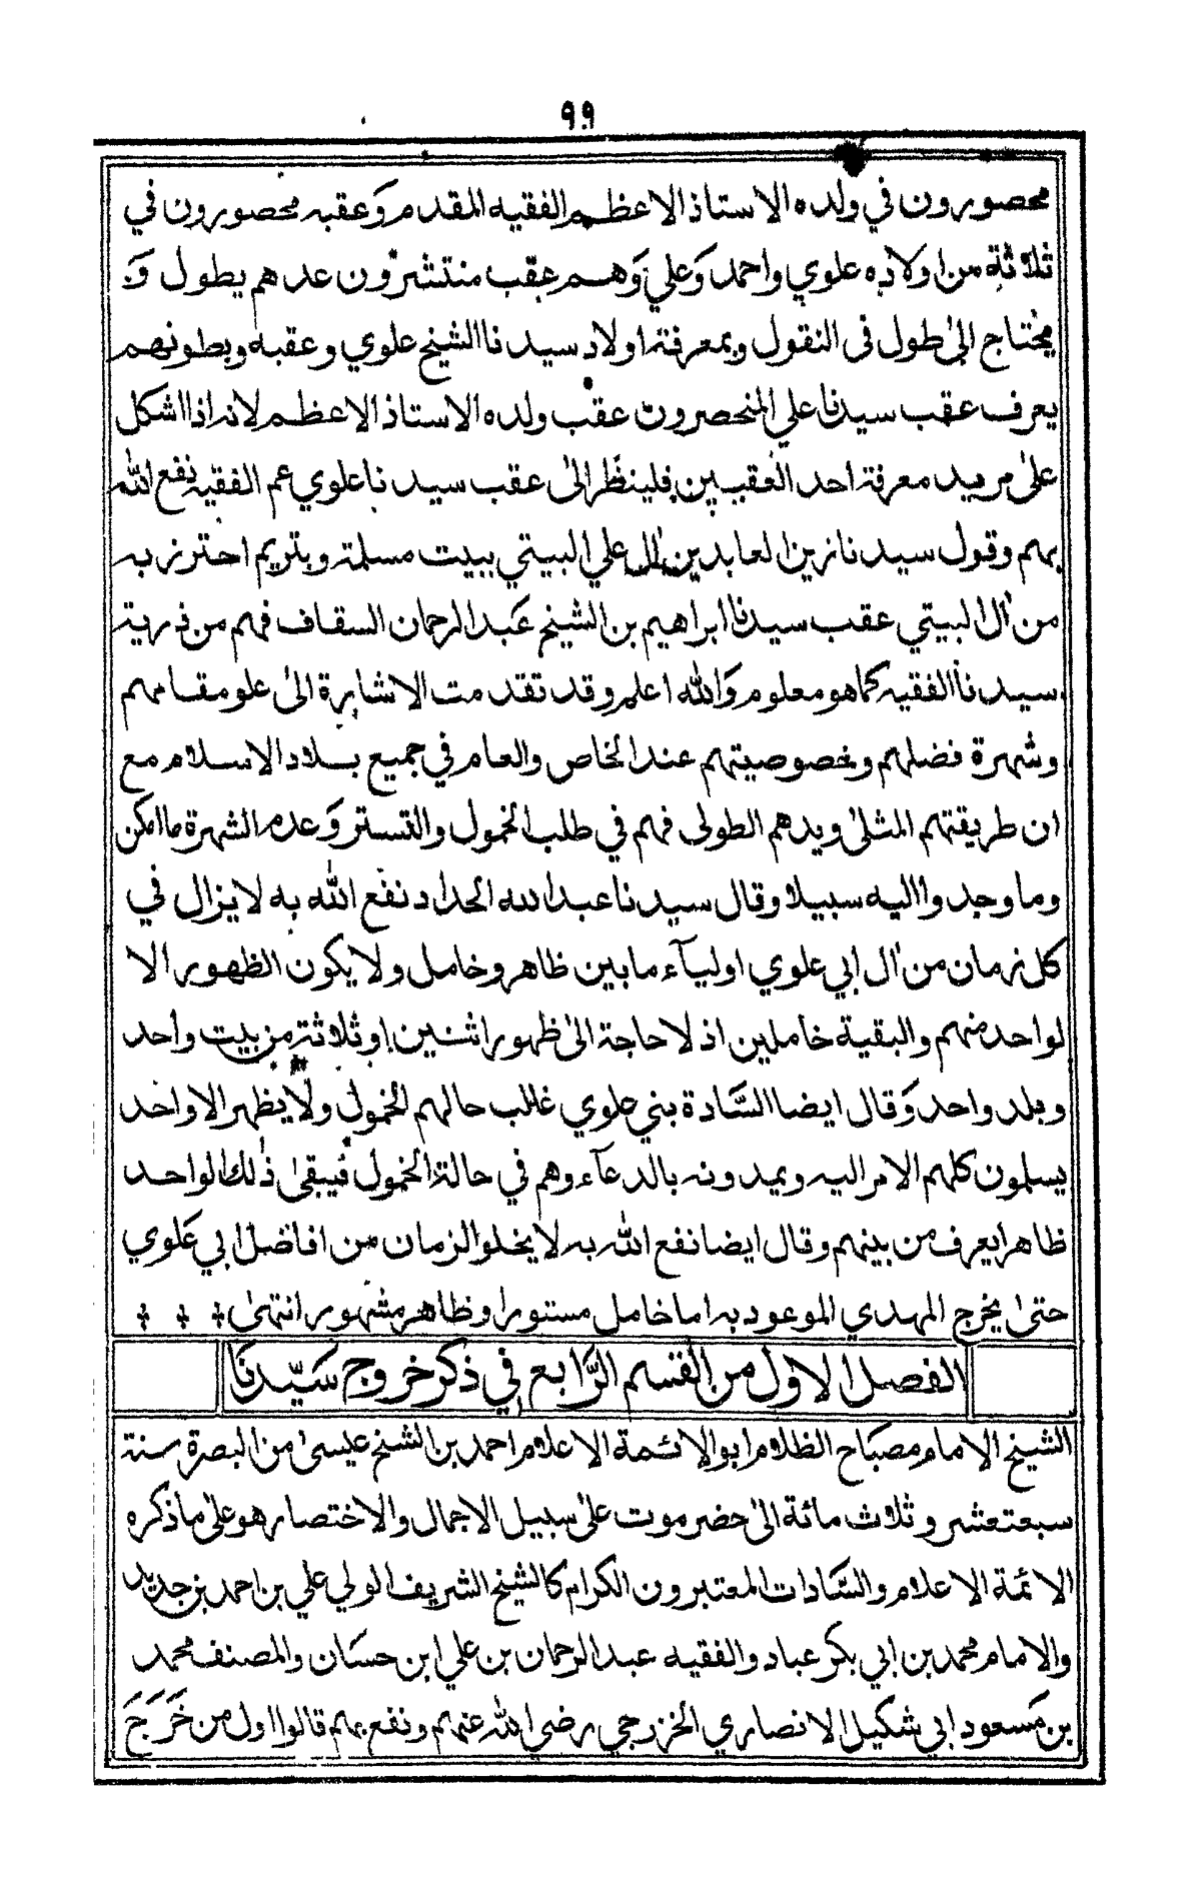 ٩٩
محصورون في ولده الاستاذ الاعظم الفقيه المقدم وَعقبه محصورون في
ثلاثة من اولاده علوي واحمد وَعلي وَهم عقب منتشرون عدهم يطول وَ
يحتاج الىٰ طول فى النقول وبمعرفة اولاد سيدنا الشيخ علوي وعقبه وبطونهم
يعرف عقب سيدنا علي المنحصرون عقب ولده الاستاذ الاعظم لانه اذا اشكل
علىٰ مريد معرفة احد العقبين فلينظر الىٰ عقب سيدنا علوي عم الفقيه نفع اللّٰه
بهم وقول سيدنا زين العابدين اٰل علي البيتي ببيت مسلمة وبتريم احترز به
من اٰل البيتي عقب سيدنا ابراهيم بن الشيخ عَبد الرحمان السقاف فهم من ذرية
سيدنا الفقيه كما هو معلوم وَاللّٰه اعلم وقد تقدمت الاشارة الىٰ علو مقامهم
وشهرة فضلهم وخصوصيتهم عند الخاص والعام في جميع بلاد الاسلام مع
ان طريقتهم المثلىٰ ويدهم الطولى فهم في طلب الخمول والتستر وَعدم الشهرة ما امكن
وما وجدوا اليه سبيلا وقال سيدنا عبد الله الحداد نفع اللّٰه به لا يزال في
كل زمان من اٰل ابي علوي اوليآء ما بين ظاهر وخامل ولا يكون الظهور الا
لواحد منهم والبقية خاملين اذ لا حاجة الىٰ ظهور اثنين او ثلاثة من بيت واحد
وبلد واحد وَقال ايضا السَّادة بني علوي غالب حالهم الخمول ولا يظهر الا واحد
يسلمون كلهم الامر اليه ويمدونه بالدعآء وهم في حالة الخمول فيبقىٰ ذٰلك الواحد
ظاهرا يعرف من بينهم وقال ايضا نفع اللّٰه به لا يخلو الزمان من افاضل ابي عَلوي
حتىٰ يخرج المهدي الموعود به اما خامل مستور او ظاهر مشهور انتهىٰ
الفصل الاول من القسم الرَّابع في ذكر خروج سَيّدنَا
الشيخ الامام مصبَاح الظلام ابو الائمة الاعلام احمد بن الشيخ عيسىٰ من البصرة سنة
سبعة عشر وثلاث مائة الىٰ حضرموت علىٰ سبيل الاجمال والاختصار هو علىٰ ما ذكره
الائمة الاعلام والسَّادات المعتبرون الكرام كالشيخ الشريف الولي علي بن احمد بن جديد
والامام محمد بن ابي بكر عباد والفقيه عبد الرحمان بن علي ابن حسَان والمصنف محمد
بن مَسعود ابي شكيل الانصاري الخزرجي رضي اللّٰه عنهم ونفع بهم قالوا اول من خَرَجَ